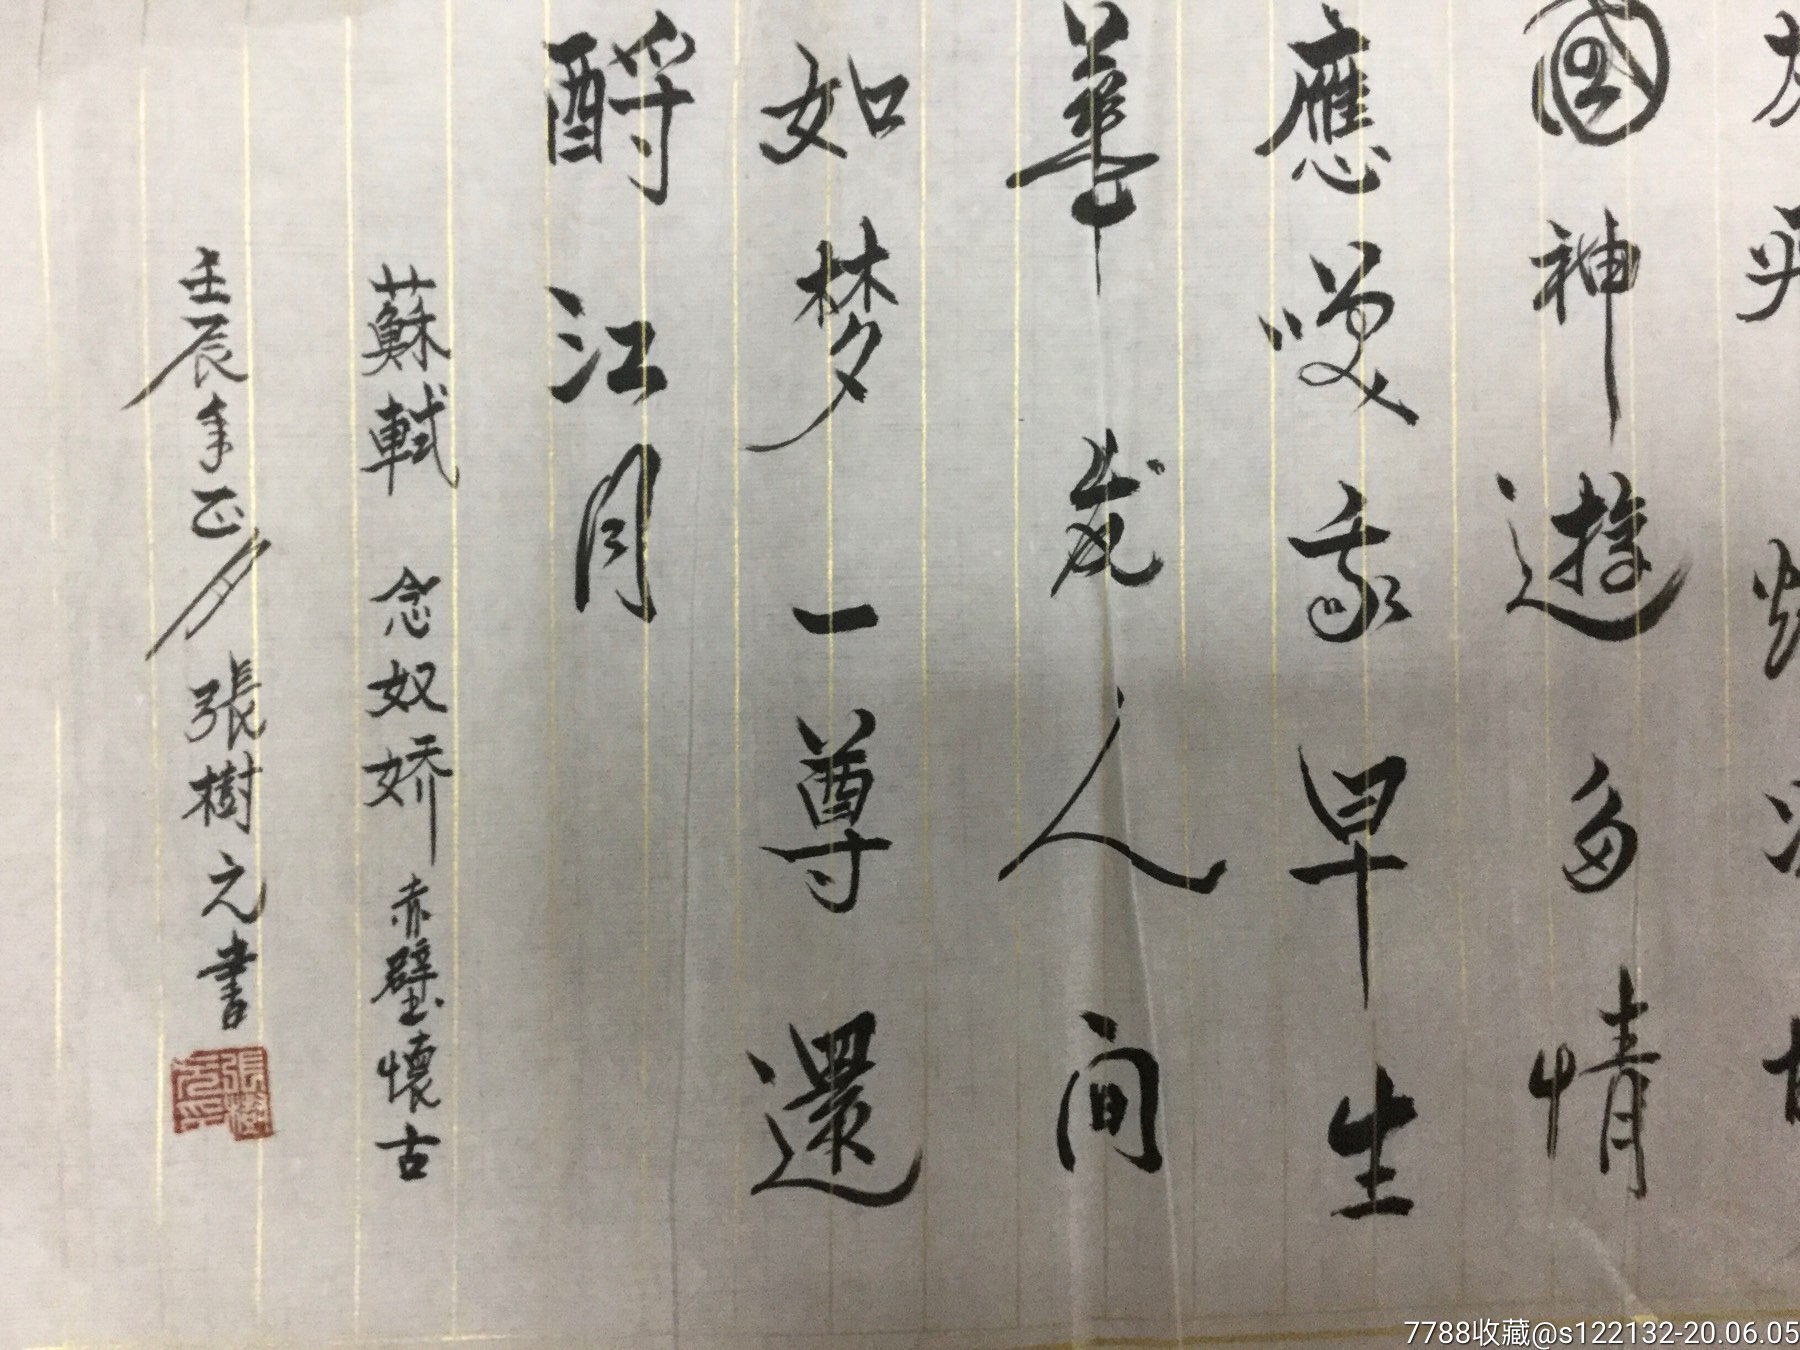 國神遊多情
應嘆我早生
華发人间
如梦一尊還
酹江月
蘇軾 念奴娇 赤壁懷古
壬辰年正月 張樹元書
張樹元印
7788收藏@s122132-20.06.05